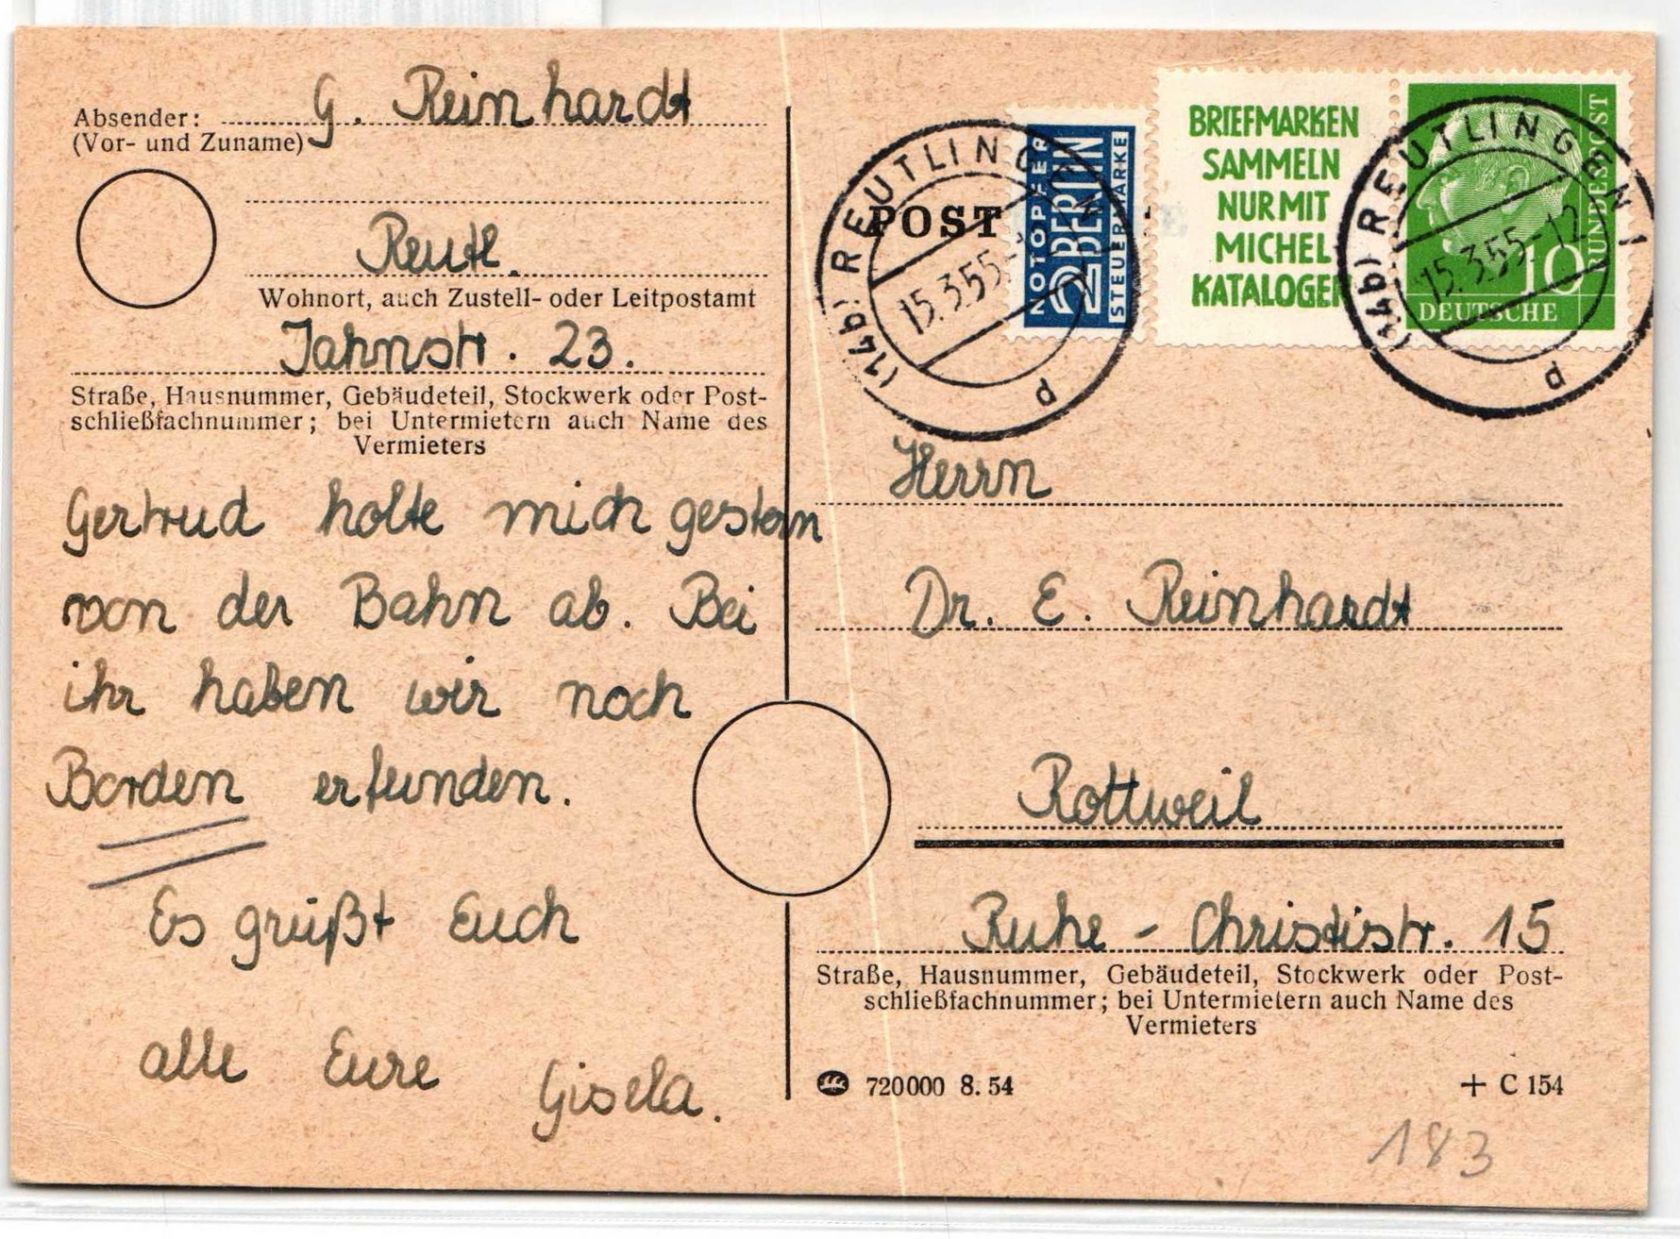 Absender: G. Reinhardt
(Vor- und Zuname)
Reutl.
Wohnort, auch Zustell- oder Leitpostamt
Jahnstr. 23.
Straße, Hausnummer, Gebäudeteil, Stockwerk oder Post-
schließfachnummer; bei Untermietern auch Name des
Vermieters
Gertrud holte mich gestern
von der Bahn ab. Bei
ihr haben wir noch
Borden erfunden.
Es grüßt Euch
alle Eure Gisela.
POST
(14b) REUTLINGEN 1
15.3.55
p
NOTOPFER
2 BERLIN
STEUERMARKE
BRIEFMARKEN
SAMMELN
NUR MIT
MICHEL
KATALOGEN
DEUTSCHE
BUNDESPOST
10
(14b) REUTLINGEN 1
15.3.55-12
p
Herrn
Dr. E. Reinhardt
Rottweil
Ruhe-Christistr. 15
Straße, Hausnummer, Gebäudeteil, Stockwerk oder Post-
schließfachnummer; bei Untermietern auch Name des
Vermieters
720000 8. 54
+ C 154
183